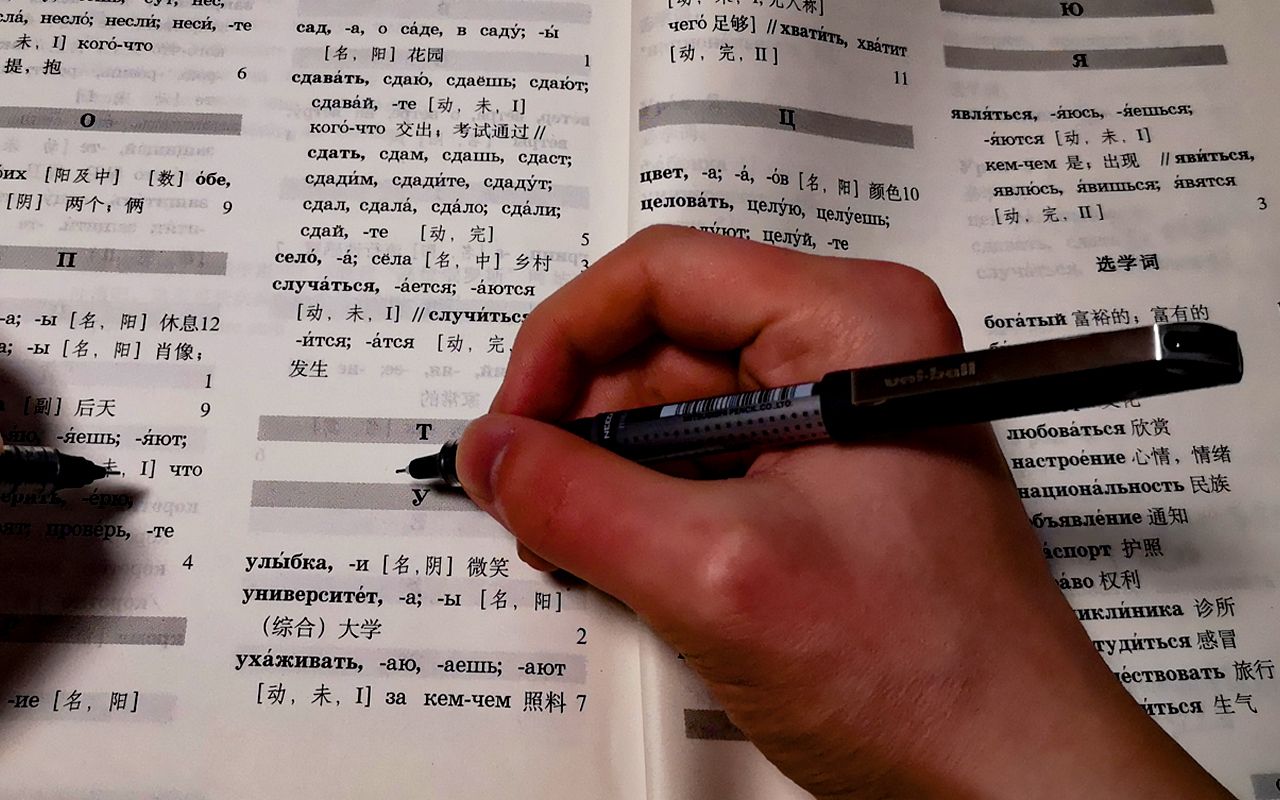 несло́; несли́; неси́, -те
未, I] кого́-что
提，抱
6
О
[阳及中] [数] о́бе,
[阴] 两个；俩 9
П
-а; -ы [名，阳] 休息12
-ы [名，阳] 肖像；
1
[副] 后天 9
-я́ешь; -я́ют;
I] что
-е́рю,
прове́рь, -те
4
-ие [名，阳]
сад, -а, о са́де, в саду́; -ы́
[名，阳] 花园 1
сдава́ть, сдаю́, сдаёшь; сдаю́т;
сдава́й, -те [动，未，I]
кого́-что 交出；考试通过 //
сдать, сдам, сдашь, сдаст;
сдади́м, сдади́те, сдаду́т;
сдал, сдала́, сда́ло; сда́ли;
сдай, -те [动，完] 5
село́, -а́; сёла [名，中] 乡村 3
случа́ться, -а́ется; -а́ются
[动，未，I] // случи́ться
-и́тся; -а́тся [动，完，
发生
Т
У
улы́бка, -и [名,阴] 微笑
университе́т, -а; -ы [名，阳]
（综合）大学 2
уха́живать, -аю, -аешь; -ают
[动，未，I] за кем-чем 照料 7
чего́ 足够] // хвати́ть, хва́тит
[动，完，II]
11
Ц
цвет, -а; -а́, -о́в [名，阳] 颜色10
целова́ть, целу́ю, целу́ешь;
целу́й, -те
Ю
Я
явля́ться, -я́юсь, -я́ешься;
-я́ются [动，未，I]
кем-чем 是；出现 // яви́ться,
явлю́сь, я́вишься; я́вятся
[动，完，II] 3
选学词
бога́тый 富裕的；富有的
uni-ball
любова́ться 欣赏
настрое́ние 心情，情绪
национа́льность 民族
объявле́ние 通知
护照
权利
诊所
感冒
旅行
生气